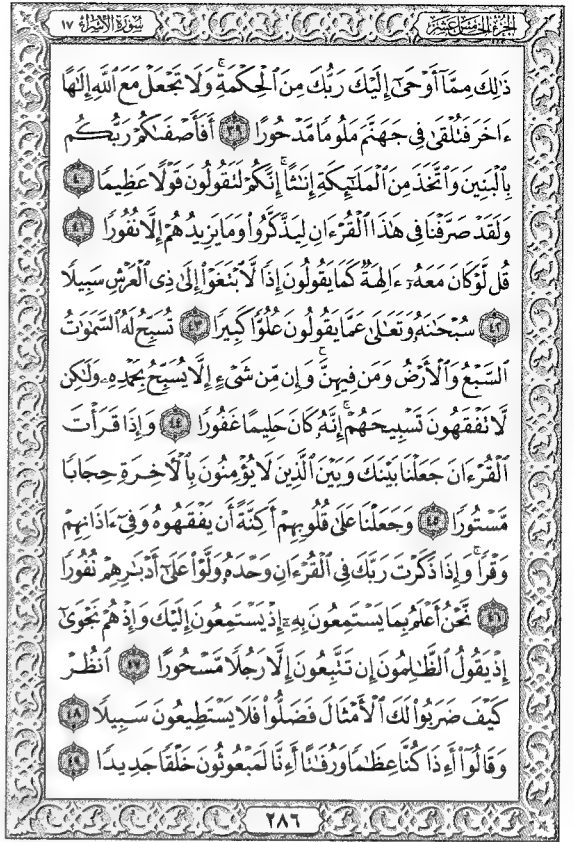 الجزء الخامس عشر
سورة الإسراء ١٧
ذَٰلِكَ مِمَّآ أَوْحَىٰٓ إِلَيْكَ رَبُّكَ مِنَ ٱلْحِكْمَةِۗ وَلَا تَجْعَلْ مَعَ ٱللَّهِ إِلَٰهًا
ءَاخَرَ فَتُلْقَىٰ فِى جَهَنَّمَ مَلُومًا مَّدْحُورًا ٣٩ أَفَأَصْفَىٰكُمْ رَبُّكُم
بِٱلْبَنِينَ وَٱتَّخَذَ مِنَ ٱلْمَلَٰٓئِكَةِ إِنَٰثًاۚ إِنَّكُمْ لَتَقُولُونَ قَوْلًا عَظِيمًا ٤٠
وَلَقَدْ صَرَّفْنَا فِى هَٰذَا ٱلْقُرْءَانِ لِيَذَّكَّرُوا۟ وَمَا يَزِيدُهُمْ إِلَّا نُفُورًا ٤١
قُل لَّوْ كَانَ مَعَهُۥٓ ءَالِهَةٌ كَمَا يَقُولُونَ إِذًا لَّٱبْتَغَوْا۟ إِلَىٰ ذِى ٱلْعَرْشِ سَبِيلًا
٤٢ سُبْحَٰنَهُۥ وَتَعَٰلَىٰ عَمَّا يَقُولُونَ عُلُوًّا كَبِيرًا ٤٣ تُسَبِّحُ لَهُ ٱلسَّمَٰوَٰتُ
ٱلسَّبْعُ وَٱلْأَرْضُ وَمَن فِيهِنَّۚ وَإِن مِّن شَىْءٍ إِلَّا يُسَبِّحُ بِحَمْدِهِۦ وَلَٰكِن
لَّا تَفْقَهُونَ تَسْبِيحَهُمْۗ إِنَّهُۥ كَانَ حَلِيمًا غَفُورًا ٤٤ وَإِذَا قَرَأْتَ
ٱلْقُرْءَانَ جَعَلْنَا بَيْنَكَ وَبَيْنَ ٱلَّذِينَ لَا يُؤْمِنُونَ بِٱلْءَاخِرَةِ حِجَابًا
مَّسْتُورًا ٤٥ وَجَعَلْنَا عَلَىٰ قُلُوبِهِمْ أَكِنَّةً أَن يَفْقَهُوهُ وَفِىٓ ءَاذَانِهِمْ
وَقْرًاۚ وَإِذَا ذَكَرْتَ رَبَّكَ فِى ٱلْقُرْءَانِ وَحْدَهُۥ وَلَّوْا۟ عَلَىٰٓ أَدْبَٰرِهِمْ نُفُورًا
٤٦ نَّحْنُ أَعْلَمُ بِمَا يَسْتَمِعُونَ بِهِۦٓ إِذْ يَسْتَمِعُونَ إِلَيْكَ وَإِذْ هُمْ نَجْوَىٰٓ
إِذْ يَقُولُ ٱلظَّٰلِمُونَ إِن تَتَّبِعُونَ إِلَّا رَجُلًا مَّسْحُورًا ٤٧ ٱنظُرْ
كَيْفَ ضَرَبُوا۟ لَكَ ٱلْأَمْثَالَ فَضَلُّوا۟ فَلَا يَسْتَطِيعُونَ سَبِيلًا ٤٨
وَقَالُوٓا۟ أَءِذَا كُنَّا عِظَٰمًا وَرُفَٰتًا أَءِنَّا لَمَبْعُوثُونَ خَلْقًا جَدِيدًا ٤٩
٢٨٦